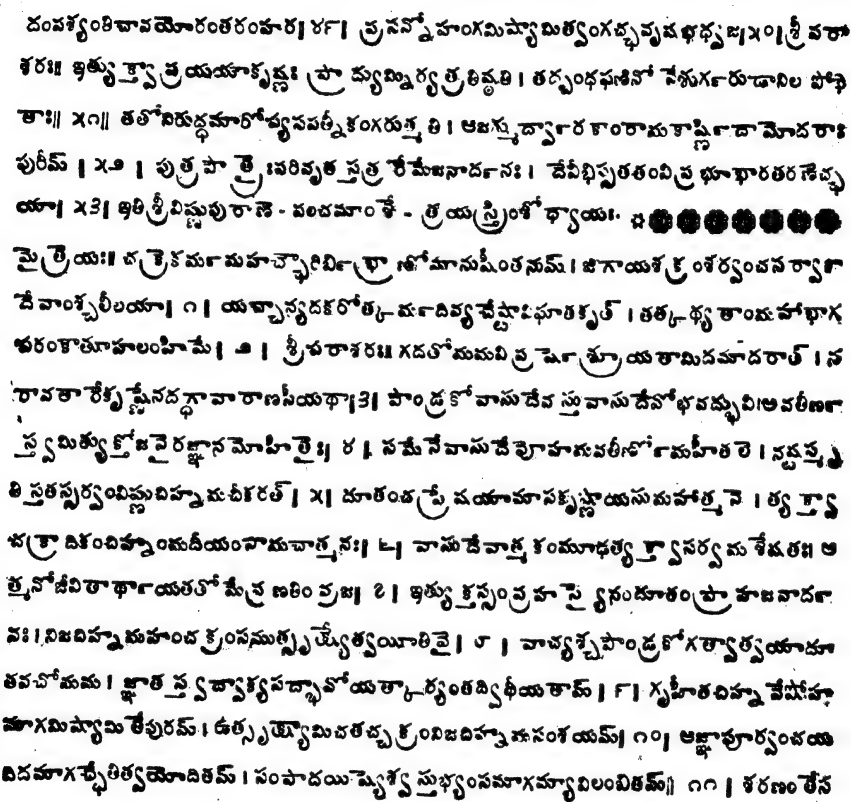 దంపశ్యంతిచావయోరంతరంహర| ౪౯| ప్రసన్నోహంగమిష్యామిత్వంగచ్ఛవృషభధ్వజ|౫౦|శ్రీ పరా
శరః॥ ఇత్యుక్త్వాప్రయయౌకృష్ణః ప్రాద్యుమ్నిర్యత్రతిష్ఠతి। తద్బంధఫణినో నేశుర్గరుడానిల పోథి
తాః॥ ౫౧॥ తతోనిరుద్ధమారోప్యసపత్నీకంగరుత్మ తి। ఆజగ్ముర్ద్వారకాంరామకార్ష్ణిదామోదరాః
పురీమ్ | ౫౨ | పుత్ర పౌ త్రైఃపరివృత స్తత్ర రేమేజనార్దనః। దేవీభిస్సతతంవిప్ర భూభారతరణేచ్ఛ
యా| ౫౩| ఇతి శ్రీవిష్ణుపురాణే - పంచమాంశే - త్రయస్త్రింశోధ్యాయః.
మైత్రేయః॥ చక్రేకర్మమహచ్ఛౌరిర్బిభ్రాణోమానుషీంతనుమ్। జిగాయశక్రంశర్వంచసర్వా
దేవాంశ్చలీలయా| ౧ | యచ్చాన్యదకరోత్కర్మదివ్యచేష్టావిఘాతకృత్ । తత్కథ్యతాంమహాభాగ
పరంకౌతూహలంహిమే| ౨ | శ్రీపరాశరః॥ గదతోమమవిప్రర్షేశ్రూయతామిదమాదరాత్ । న
రావతారేకృష్ణేనదగ్ధావారాణసీయథా|౩| పౌండ్రకోవాసుదేవస్తువాసుదేవోభవద్భువి।అవతీర్ణ
స్త్వమిత్యుక్తోజనైరజ్ఞానమోహితైః| ౪ | సమేనేవాసుదేవోహమవతీర్ణోమహీతలే । నష్టస్మృ
తి స్తతస్సర్వంవిష్ణుచిహ్నమచీకరత్ | ౫| దూతంచప్రేషయామాసకృష్ణాయసుమహాత్మనే । త్యక్త్వా
చక్రాదికంచిహ్నంమదీయంనామచాత్మనః| ౬| వాసుదేవాత్మకంమూఢత్యక్త్వాసర్వమశేషతః। ఆ
త్మనోజీవితార్థాయతతోమేప్రణతింవ్రజ| ౭ | ఇత్యుక్తస్సంప్రహస్యైనందూతంప్రాహజనార్ద
నః।నిజచిహ్నమహంచక్రంసముత్సృక్ష్యేత్వయీతివై| ౮ | వాచ్యశ్చపౌండ్రకోగత్వాత్వయాదూ
తవచోమమ। జ్ఞాతస్త్వద్వాక్యసద్భావోయత్కార్యంతద్విధీయతామ్ | ౯| గృహీతచిహ్నవేషోహ
మాగమిష్యామి తేపురమ్। ఉత్సృక్ష్యామిచతచ్చక్రంనిజచిహ్నమసంశయమ్| ౧౦| ఆజ్ఞాపూర్వంచయ
దిదమాగచ్ఛేతిత్వయోదితమ్ । సంపాదయిష్యేశ్వస్తుభ్యంసమాగమ్యావిలంబితమ్॥ ౧౧ | శరణంతేస